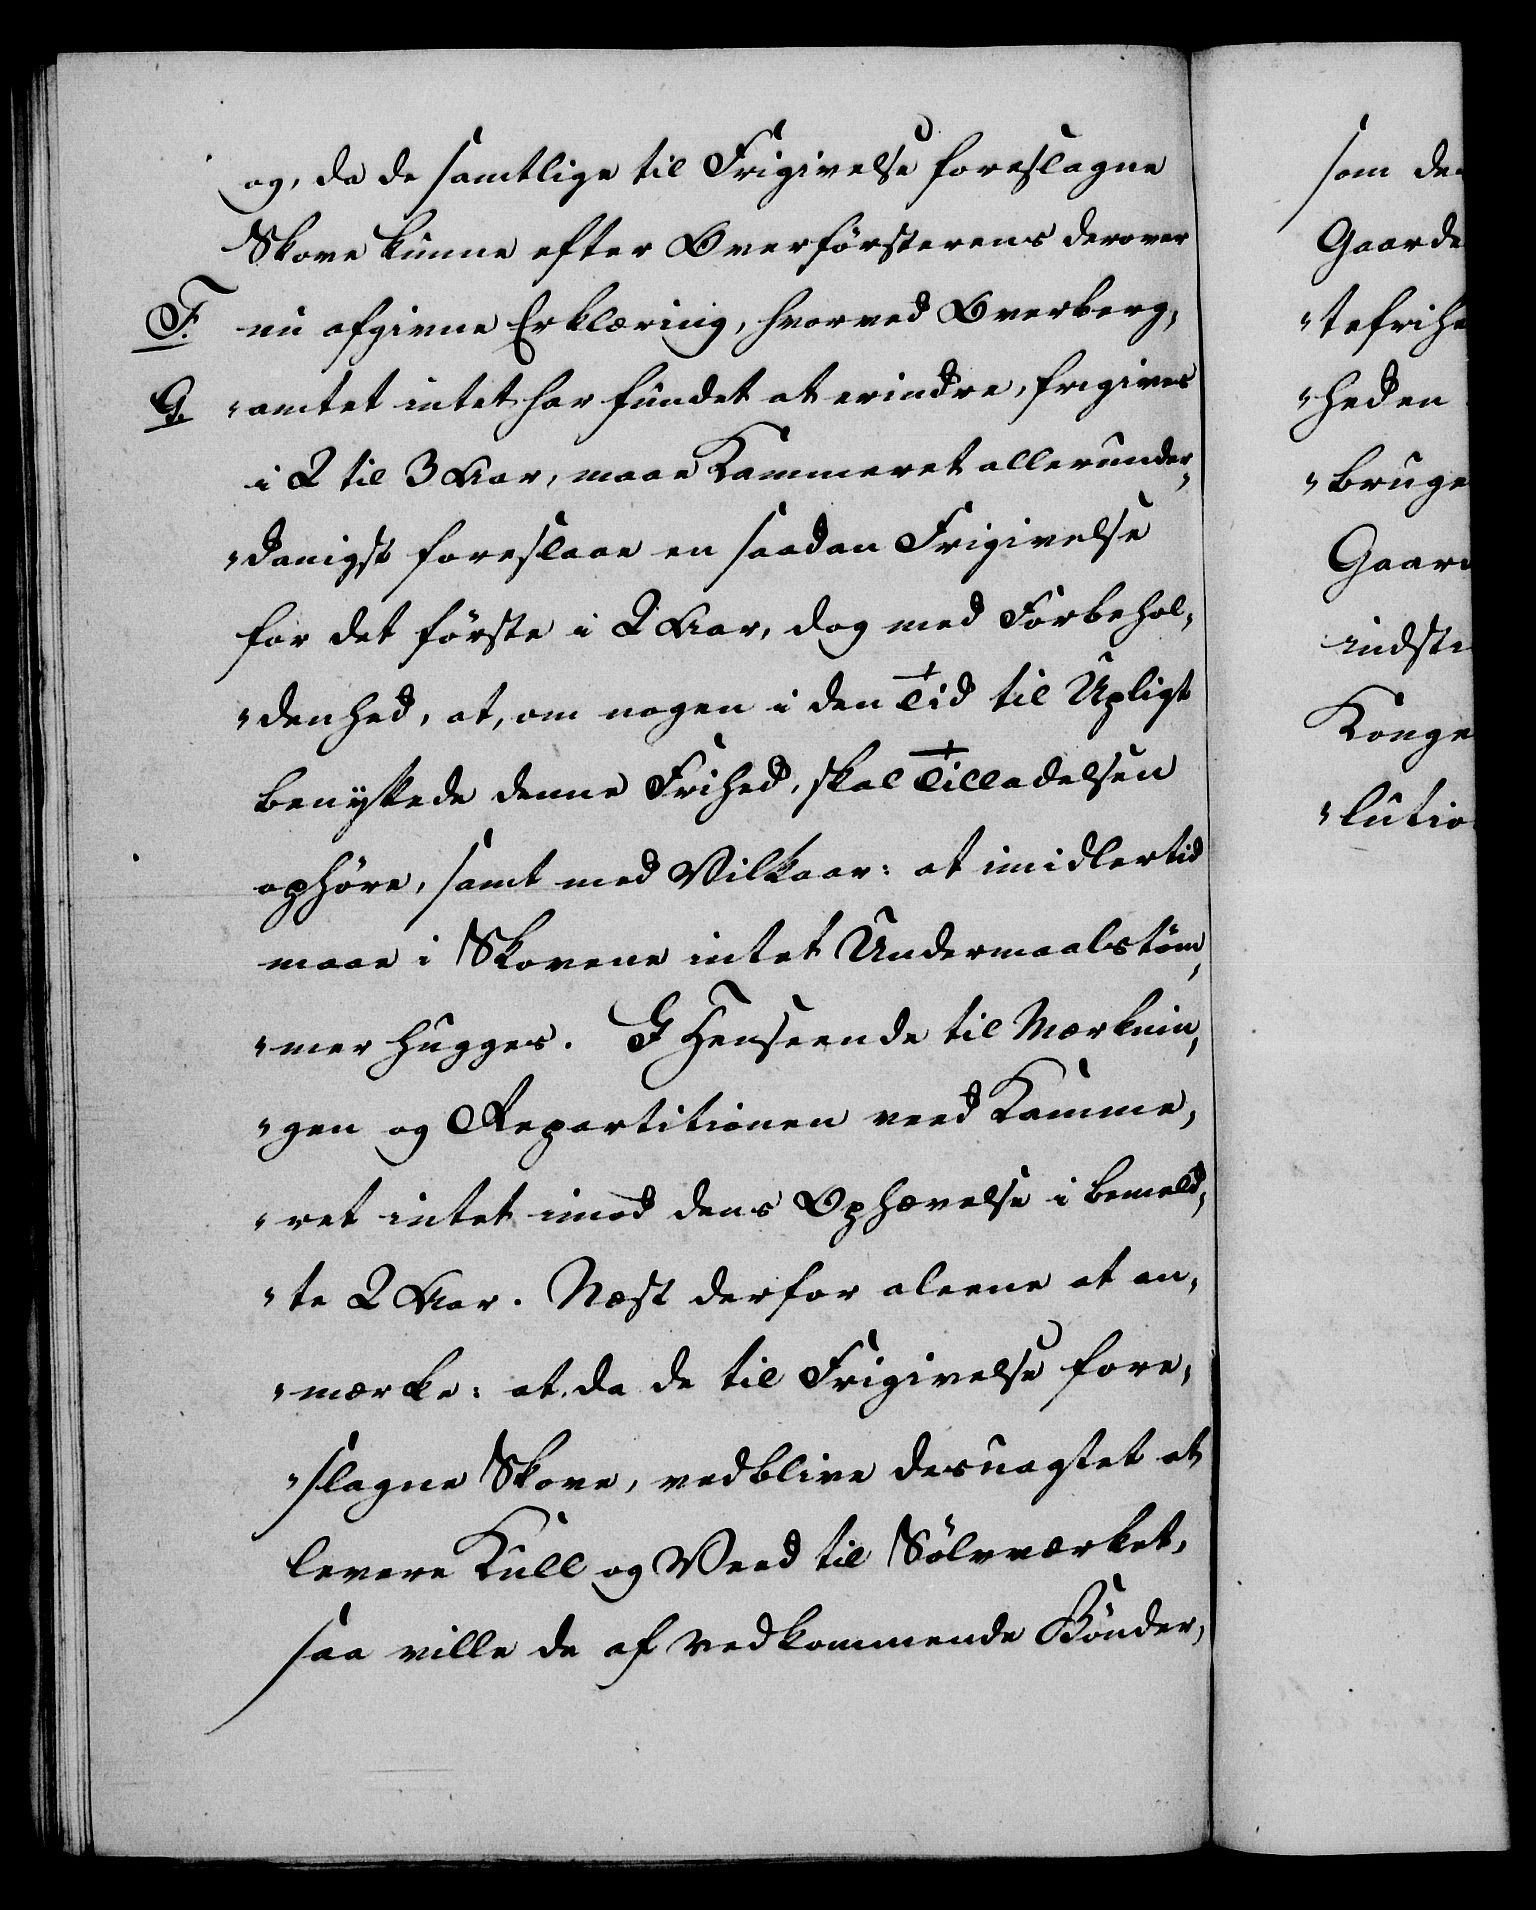 og, da de samtlige til Frigivelse foreslagne
Skove kunne efter Overförsterens derover
F. nu afgivne Erklæring, hvorved Overberg,
G. "amtet intet har fundet at erindre, frigives
i 2 til 3 Aar, maae Kammeret allerunder,
"danigst foreslaae en saadan Frigivelse
for det förste i 2 Aar, dog med Forbehol,
"denhed, at, om nogen i den Tid til Upligt
benyttede denne Frihed, skal Tilladelsen
ophøre, samt med Vilkaar: at imidlertid
maae i Skovene intet Undermaalstöm,
"mer hugges. I Henseende til Mærknin,
"gen og Repartitionen veed Kamme,
"ret intet imod dens Ophævelse i bemeld,
"te 2 Aar. Næst derfor aleene at an,
"mærke: at, da de til Frigivelse fore,
"slagne Skove, vedblive desuagtet at
levere Kull og Veed til Sölvværket,
saa ville de af vedkommende Bönder,
som de
Gaarde
"tefrihe
"heden
"bruge
Gaar
indste
Konge
"lutio